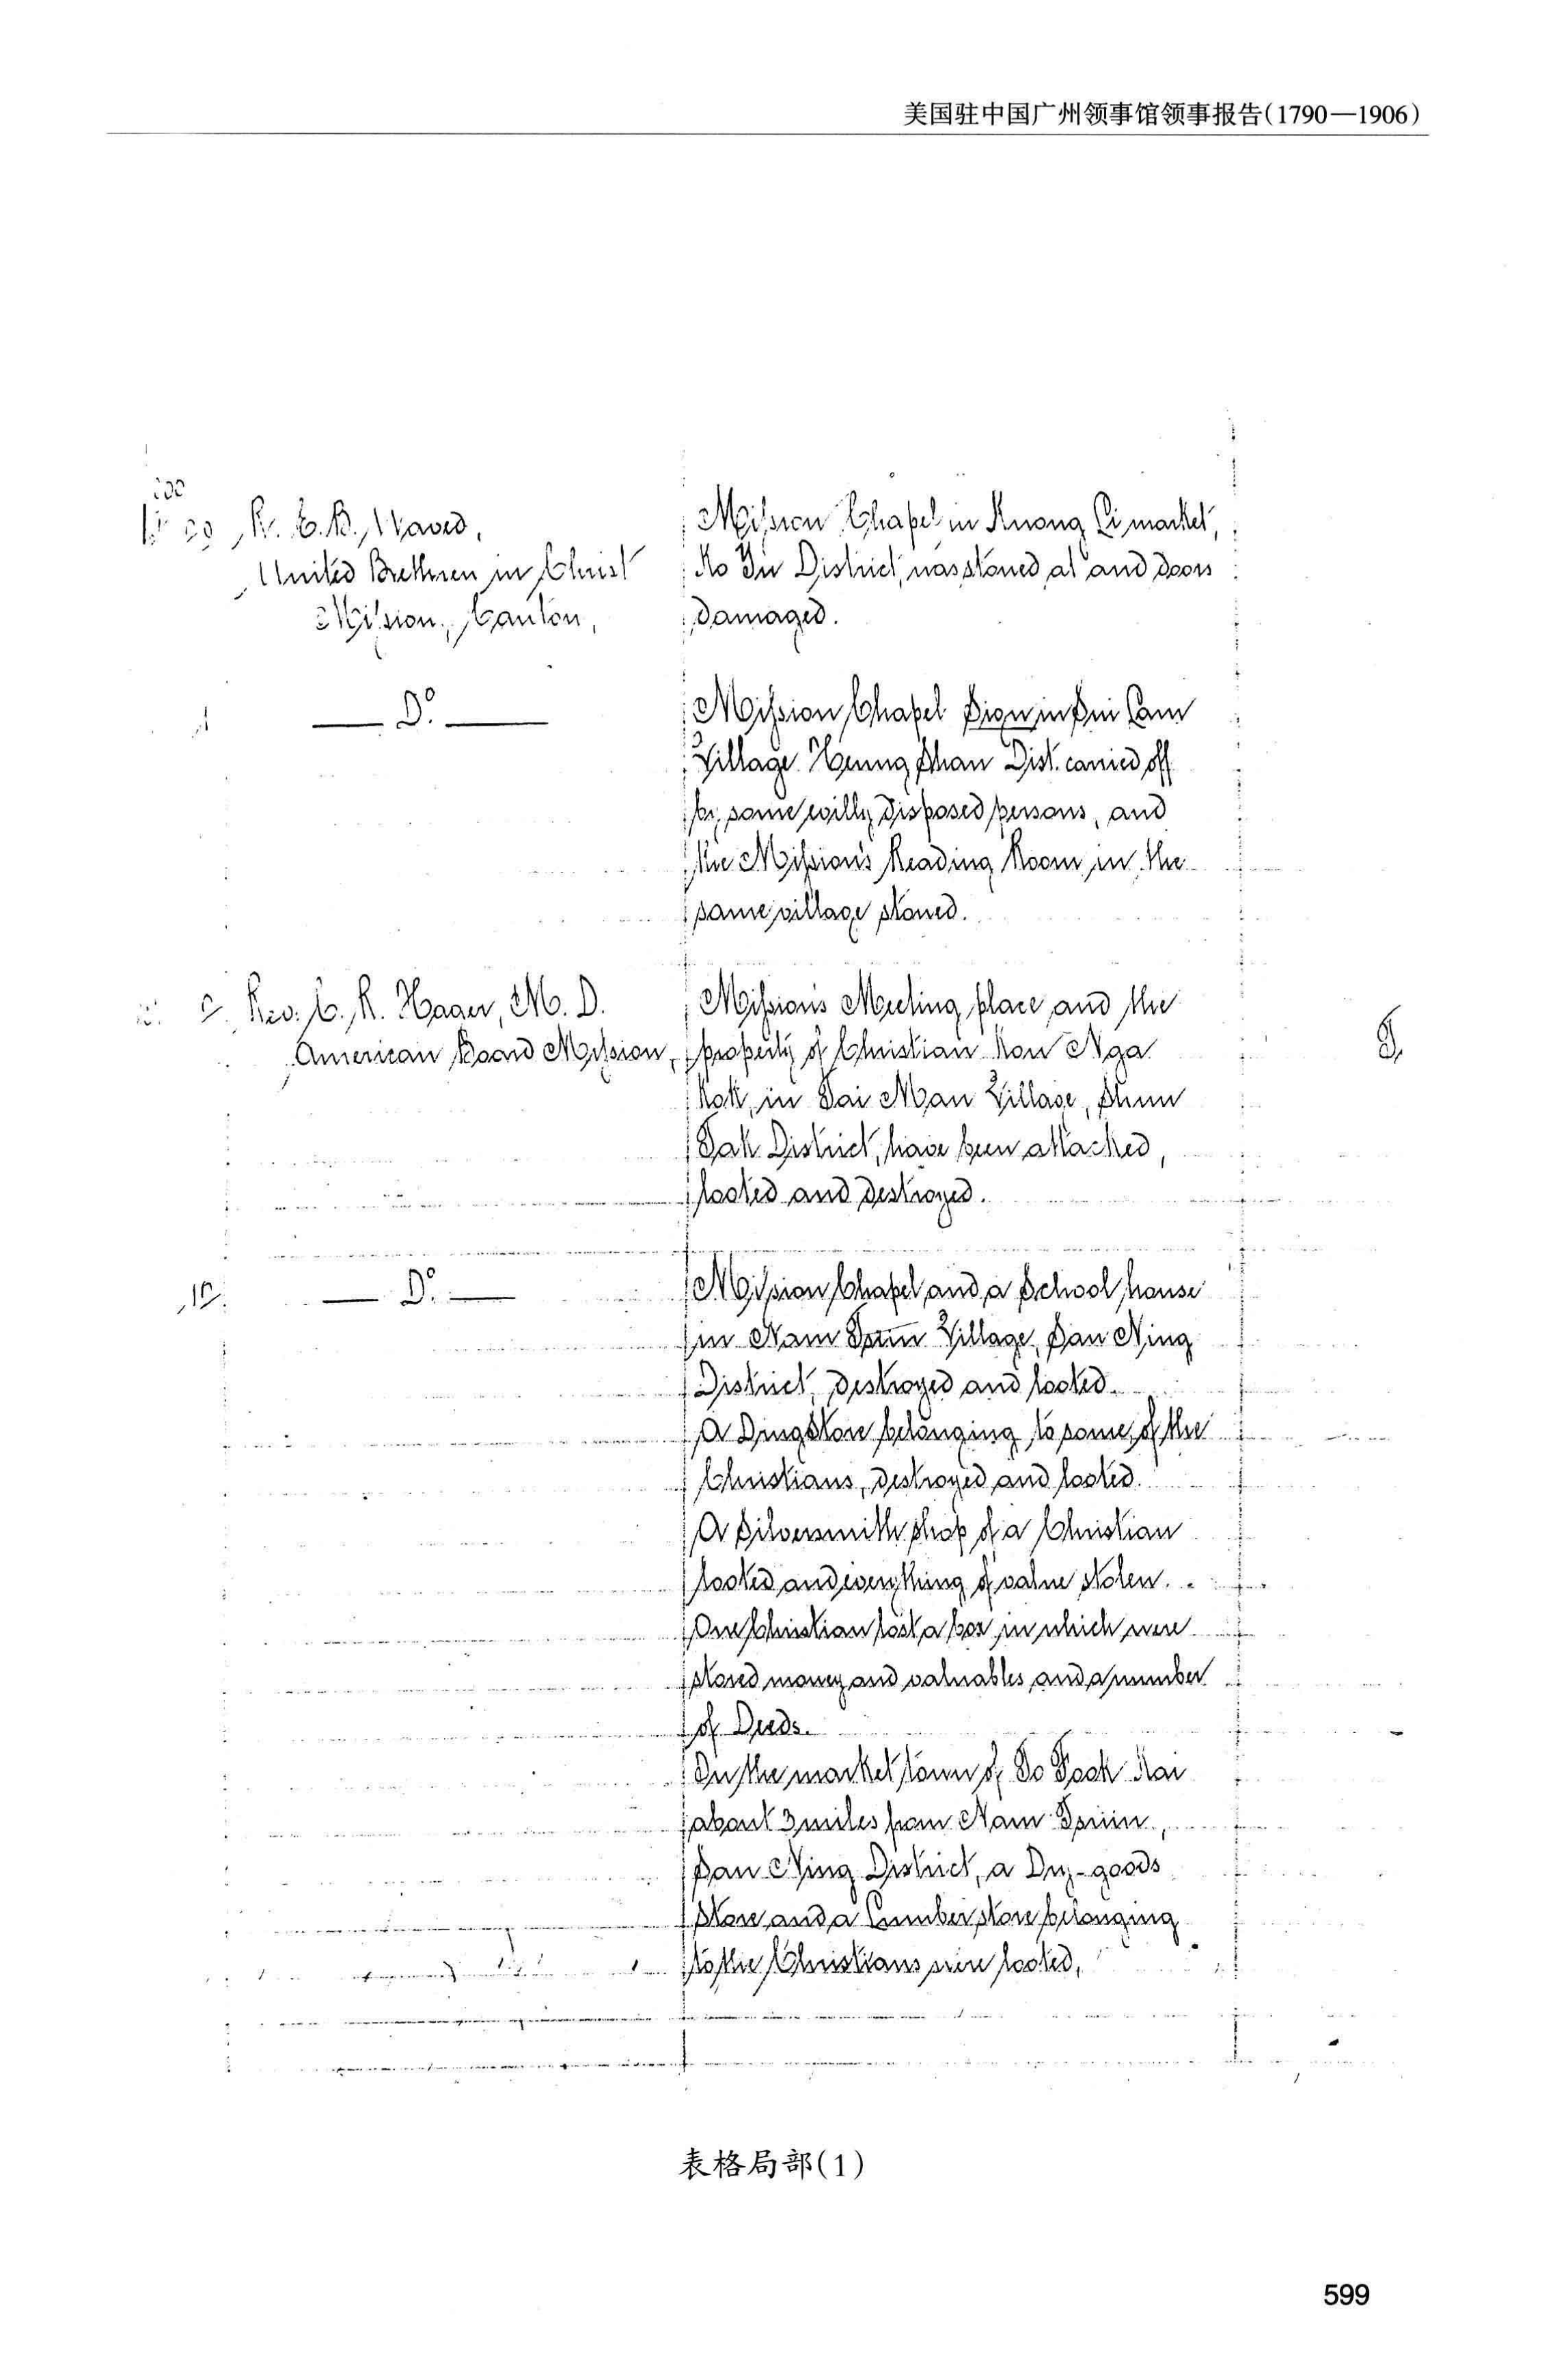 美国驻中国广州领事馆领事报告(1790—1906)
United Brethren in Christ
Mission, Canton,
Mission Chapel in Kwong Li market,
Ko In District, was stoned at and doors
damaged.
— Do. —
Mission Chapel Sign in Sui Lam
Village Heung Shan Dist. carried off
by some evilly disposed persons, and
the Mission's Reading Room in the
same village stoned.
Rev. C. R. Hager, M. D.
American Board Mission,
Mission's Meeting place and the
property of Christian Kou Nga
Kok, in Tai Man Village, Shun
Tak District, have been attacked,
looted and destroyed.
— Do. —
Mission Chapel and a School house
in Nam Village, San Ning
District, destroyed and looted.
A Drug Store belonging to some of the
Christians, destroyed and looted.
A Silversmith shop of a Christian
looted and everything of value stolen.
One Christian lost a box in which were
stored money and valuables and a number
of Deeds.
In the market town of To Fook Kai
about 3 miles from Nam
San Ning District, a Dry-goods
Store and a Lumber store belonging
to the Christians were looted,
表格局部(1)
599